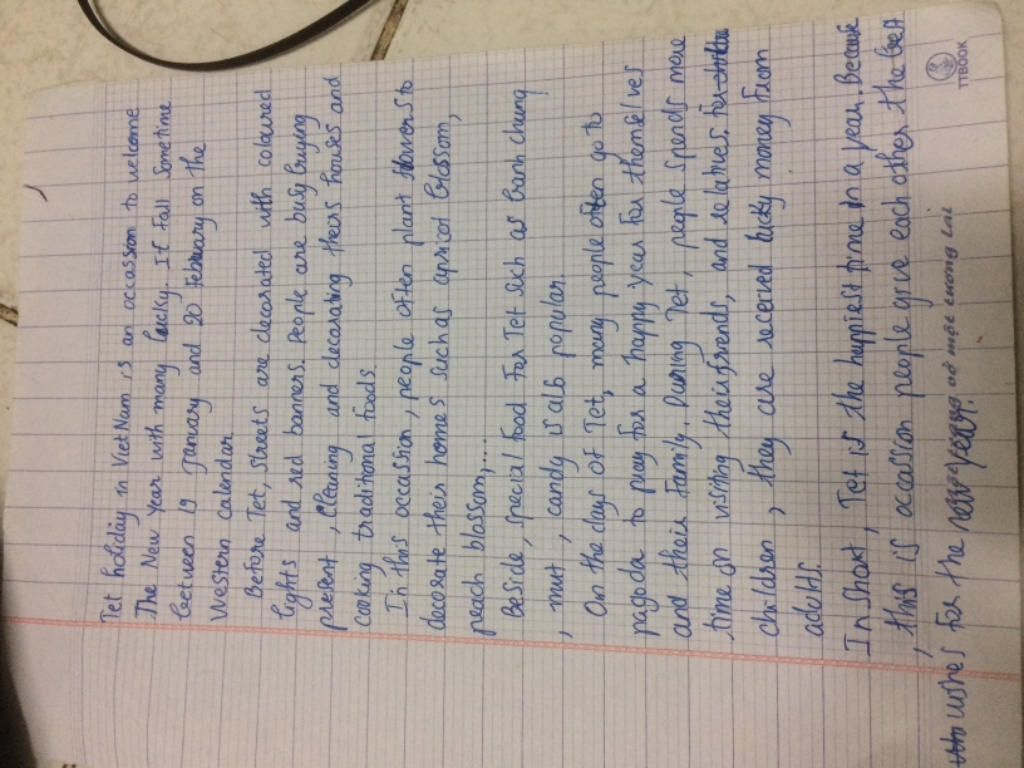 Tet holiday in Viet Nam is an occassion to welcome
The New Year with many lucky. It fall sometime
between 19 January and 20 February on the
Western calendar.
Before Tet, streets are decorated with coloured
lights and red banners. People are busy buying
present, cleaning and decorating theirs houses and
cooking traditional foods.
In this occassion, people often plant flowers to
decorate their homes such as apricot blossom,
peach blossom,...
Beside, special food for Tet such as banh chung
, mut, candy is also popular.
On the days of Tet, many people often go to
pagoda to pray for a happy year for themselves
and their family. During Tet, people spends more
time on visiting their friends, and relatives. For
children, they are received lucky money from
adults.
In short, Tet is the happiest time in a year. Because
, this is occassion people give each other the best
wishes for the new year. vì một tương lai
TTBOOK